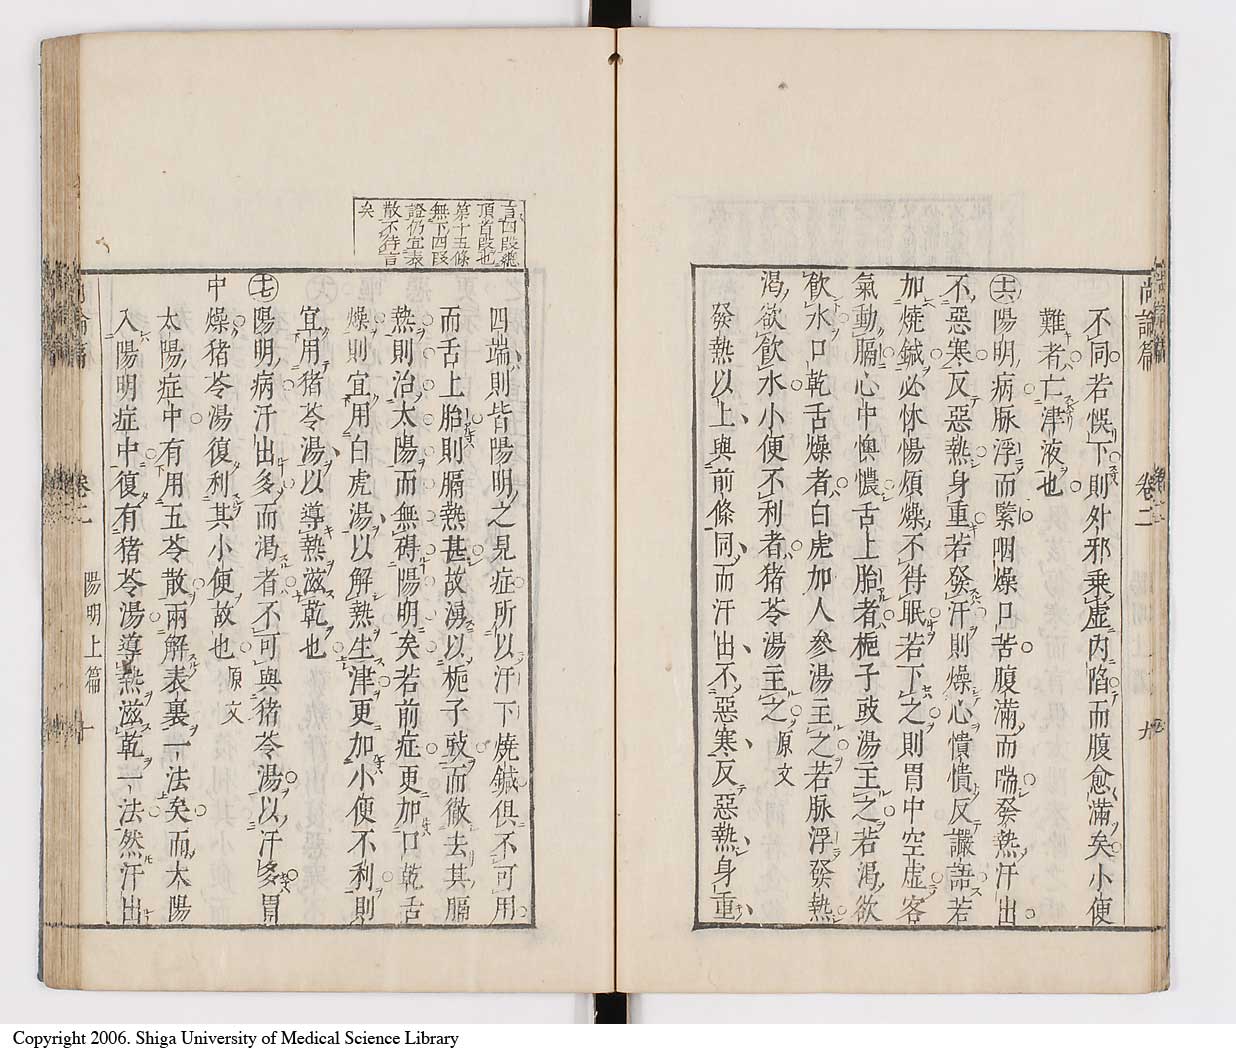 尚論篇 卷二 九
不同若悞下則外邪乗虚内陷而腹愈滿矣小便
難者亡津液也
㊅陽明病脉浮而緊咽燥口苦腹滿而喘發熱汗出
不惡寒反惡熱身重若發汗則燥心憒憒反讝語若
加燒鍼必怵惕煩燥不得眠若下之則胃中空虚客
氣動膈心中懊憹舌上胎者梔子豉湯主之若渴欲
飲水口乾舌燥者白虎加人參湯主之若脉浮發熱
渴欲飲水小便不利者猪苓湯主之原文
發熱以上與前條同而汗出不惡寒反惡熱身重
言四段總
頂首段也
第十五條
無下四段
證仍宜表
散不待言
矣
四端則皆陽明之見症所以汗下燒鍼俱不可用
而舌上胎則膈熱甚故湧以梔子豉而徹去其膈
熱則治太陽而無碍陽明矣若前症更加口乾舌
燥則宜用白虎湯以解熱生津更加小便不利則
宜用猪苓湯以導熱滋乾也
陽明病汗出多而渴者不可與猪苓湯以汗多胃
中燥猪苓湯復利其小便故也原文
太陽症中有用五苓散兩解表裏一法矣而太陽
入陽明症中復有猪苓湯導熱滋乾一法然汗出
卷二 陽明上篇 十